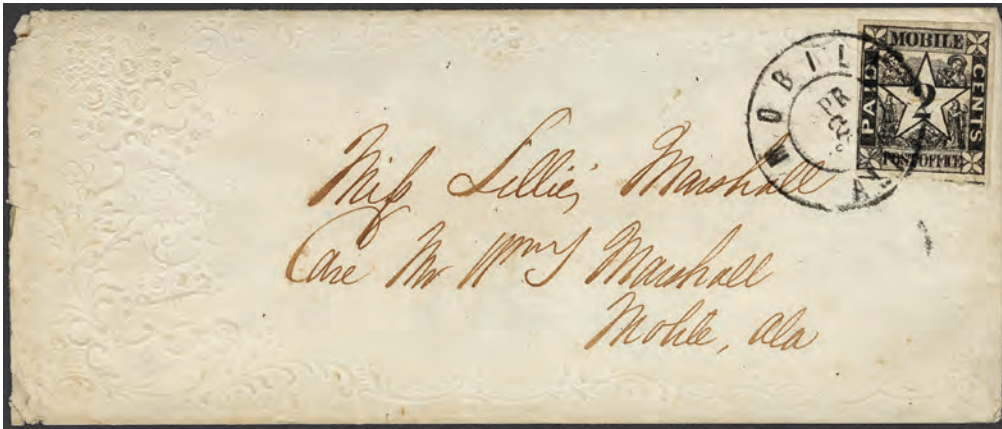 MOBILE
PAID 2 CENTS
POST OFFICE
MOBIL
PR
AL
Miss Lillie Marshall
Care Mr Wm S Marshall
Mobile, Ala